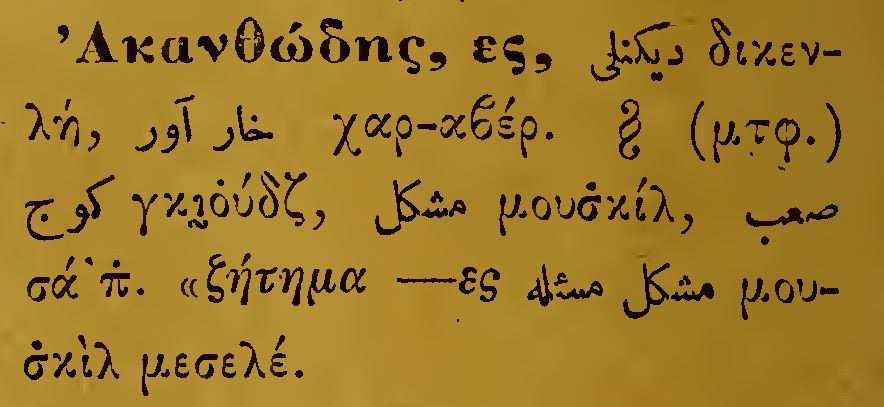 Ἀκανθώδης, ες, دیكنلی δικεν-
λή, خار آور χαρ-αβέρ. § (μτφ.)
كوج γκι̯ού̇δζ, مشكل μουσ̇κίλ, صعب
σά῾π̇. «ζήτημα —ες مشكل مسئله μου-
σ̇κὶλ μεσελέ.